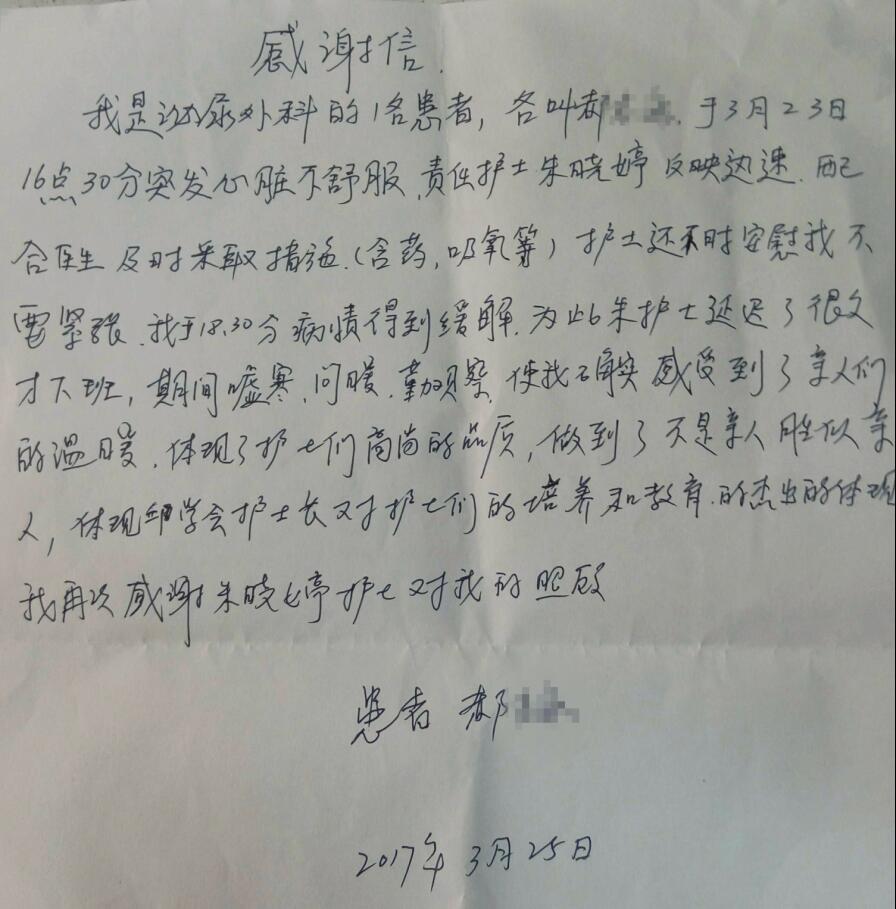 感谢信.
我是泌尿外科的1名患者，名叫郝 于3月23日
16点30分突发心脏不舒服,责任护士朱晓婷反映迅速.配
合医生及时采取措施.(含药,吸氧等)护士还不时安慰我不
要紧张.我于18.30分病情得到缓解.为此朱护士延迟了很久
才下班，期间嘘寒.问暖.勤观察.使我确实感受到了亲人们
的温暖.体现了护士们高尚的品质，做到了不是亲人胜似亲
人，体现 学会护士长对护士们的培养和教育.的杰出的体现
我再次感谢朱晓婷护士对我的照顾
患者 郝
2017年3月25日